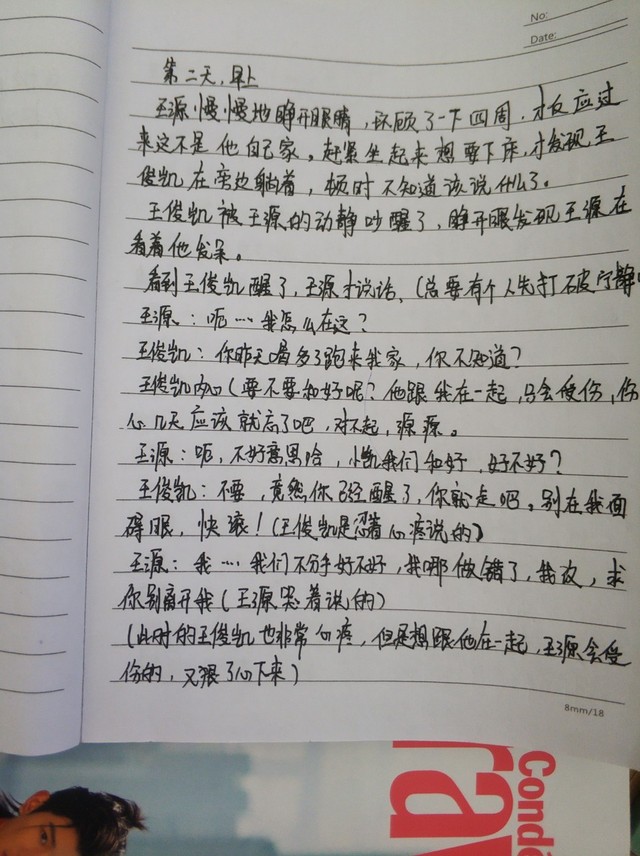 No:
Date:
第二天,早上
王源慢慢地睁开眼睛,环顾了一下四周,才反应过
来这不是他自己家。赶紧坐起来想要下床,才发现王
俊凯在旁边躺着,顿时不知道该说什么了。
王俊凯被王源的动静吵醒了,睁开眼发现王源在
看着他发呆。
看到王俊凯醒了,王源才说话,(总要有个人先打破宁静
王源:呃····我怎么在这?
王俊凯:你昨天喝多了跑来我家,你不知道?
王俊凯内心(要不要和好呢?他跟我在一起,只会受伤,伤
心几天应该就忘了吧,对不起,源源。
王源:呃,不好意思哈,小凯我们和好,好不好?
王俊凯:不要,竟然你已经醒了,你就走吧。别在我面
碍眼,快滚!(王俊凯是忍着心疼说的)
王源:我····我们不分手好不好,我哪做错了,我改,求
你别离开我(王源哭着说的)
(此时的王俊凯也非常心疼,但是想跟他在一起,王源会受
伤的,又狠了心下来)
8mm/18
Condé
ra